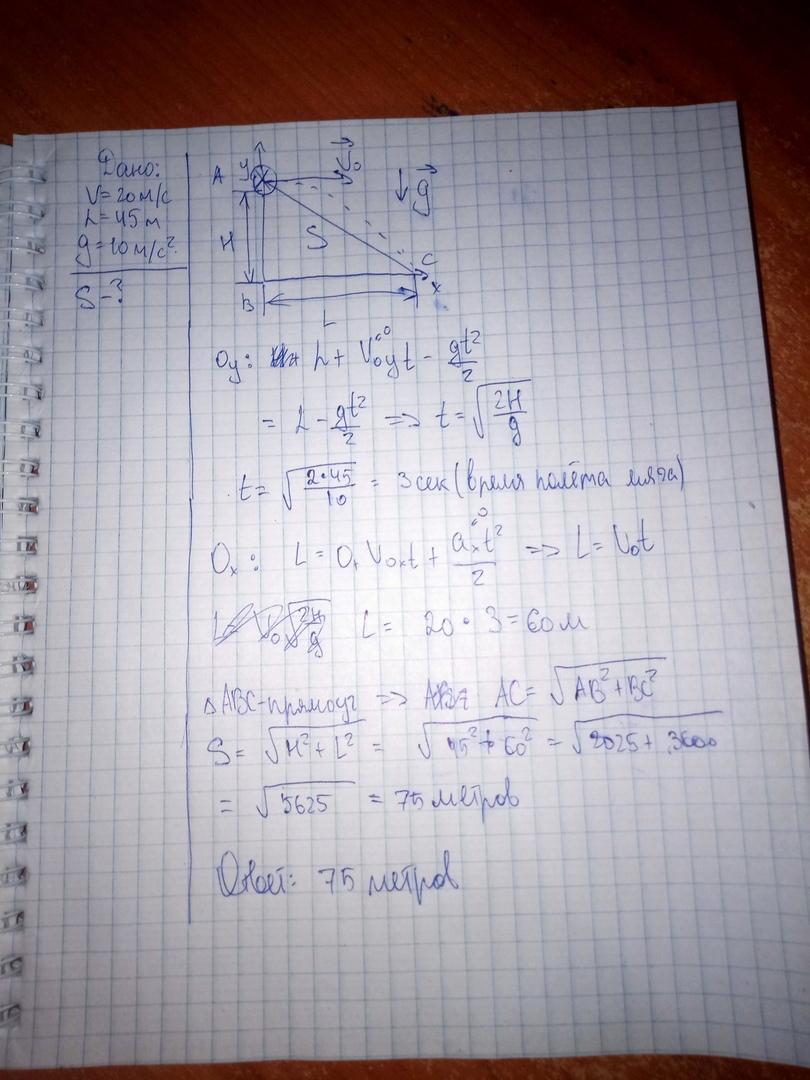 Дано:
V=20м/с
h=45м
g=10м/с².
S-?
A
y
V₀
g
H
S
C
B
x
L
Oy: h+V₀yt - gt²/2
= h - gt²/2 => t=√(2H/g)
t= √(2•45/10) = 3сек (время полёта мяча)
Ox: L= 0+ V₀xt + aₓt²/2 => L= V₀t
L= 20 • 3=60м
△ABC-прямоуг => AC= √(AB²+BC²)
S= √(H²+L²) = √(45²+60²) = √(2025+3600)
= √5625 = 75 метров
Ответ: 75 метров